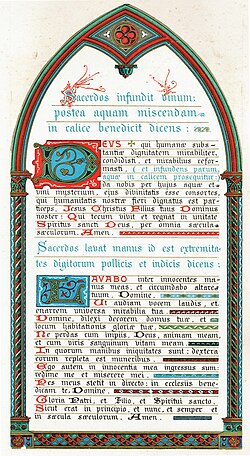 Sacerdos infundit vinum:
postea aquam miscendam
in calice benedicit dicens:
DEUS ✠ qui humanæ subs-
tantiæ dignitatem mirabiliter
condidisti, et mirabilius refor-
masti, (et infundens parum
aquæ in calicem prosequitur:)
da nobis per hujus aquæ et
vini mysterium, ejus divinitatis esse consortes,
qui humanitatis nostræ fieri dignatus est par-
ticeps, Jesus Christus Filius tuus Dominus
noster: Qui tecum vivit et regnat in unitate
Spiritus sancti Deus, per omnia sæcula
sæculorum. Amen.
Sacerdos lavat manus id est extremita-
tes digitorum pollicis et indicis dicens:
LAVABO inter innocentes ma-
nus meas, et circumdabo altare
tuum, Domine.
Ut audiam vocem laudis, et
enarrem universa mirabilia tua.
Domine, dilexi decorem domus tuæ, et
locum habitationis gloriæ tuæ.
Ne perdas cum impiis, Deus, animam meam,
et cum viris sanguinum vitam meam
In quorum manibus iniquitates sunt: dextera
eorum repleta est muneribus.
Ego autem in innocentia mea ingressus sum:
redime me et miserere mei.
Pes meus stetit in directo: in ecclesiis bene-
dicam te, Domine.
Gloria Patri, et Filio, et Spiritui sancto.
Sicut erat in principio, et nunc, et semper et
in sæcula sæculorum. Amen.